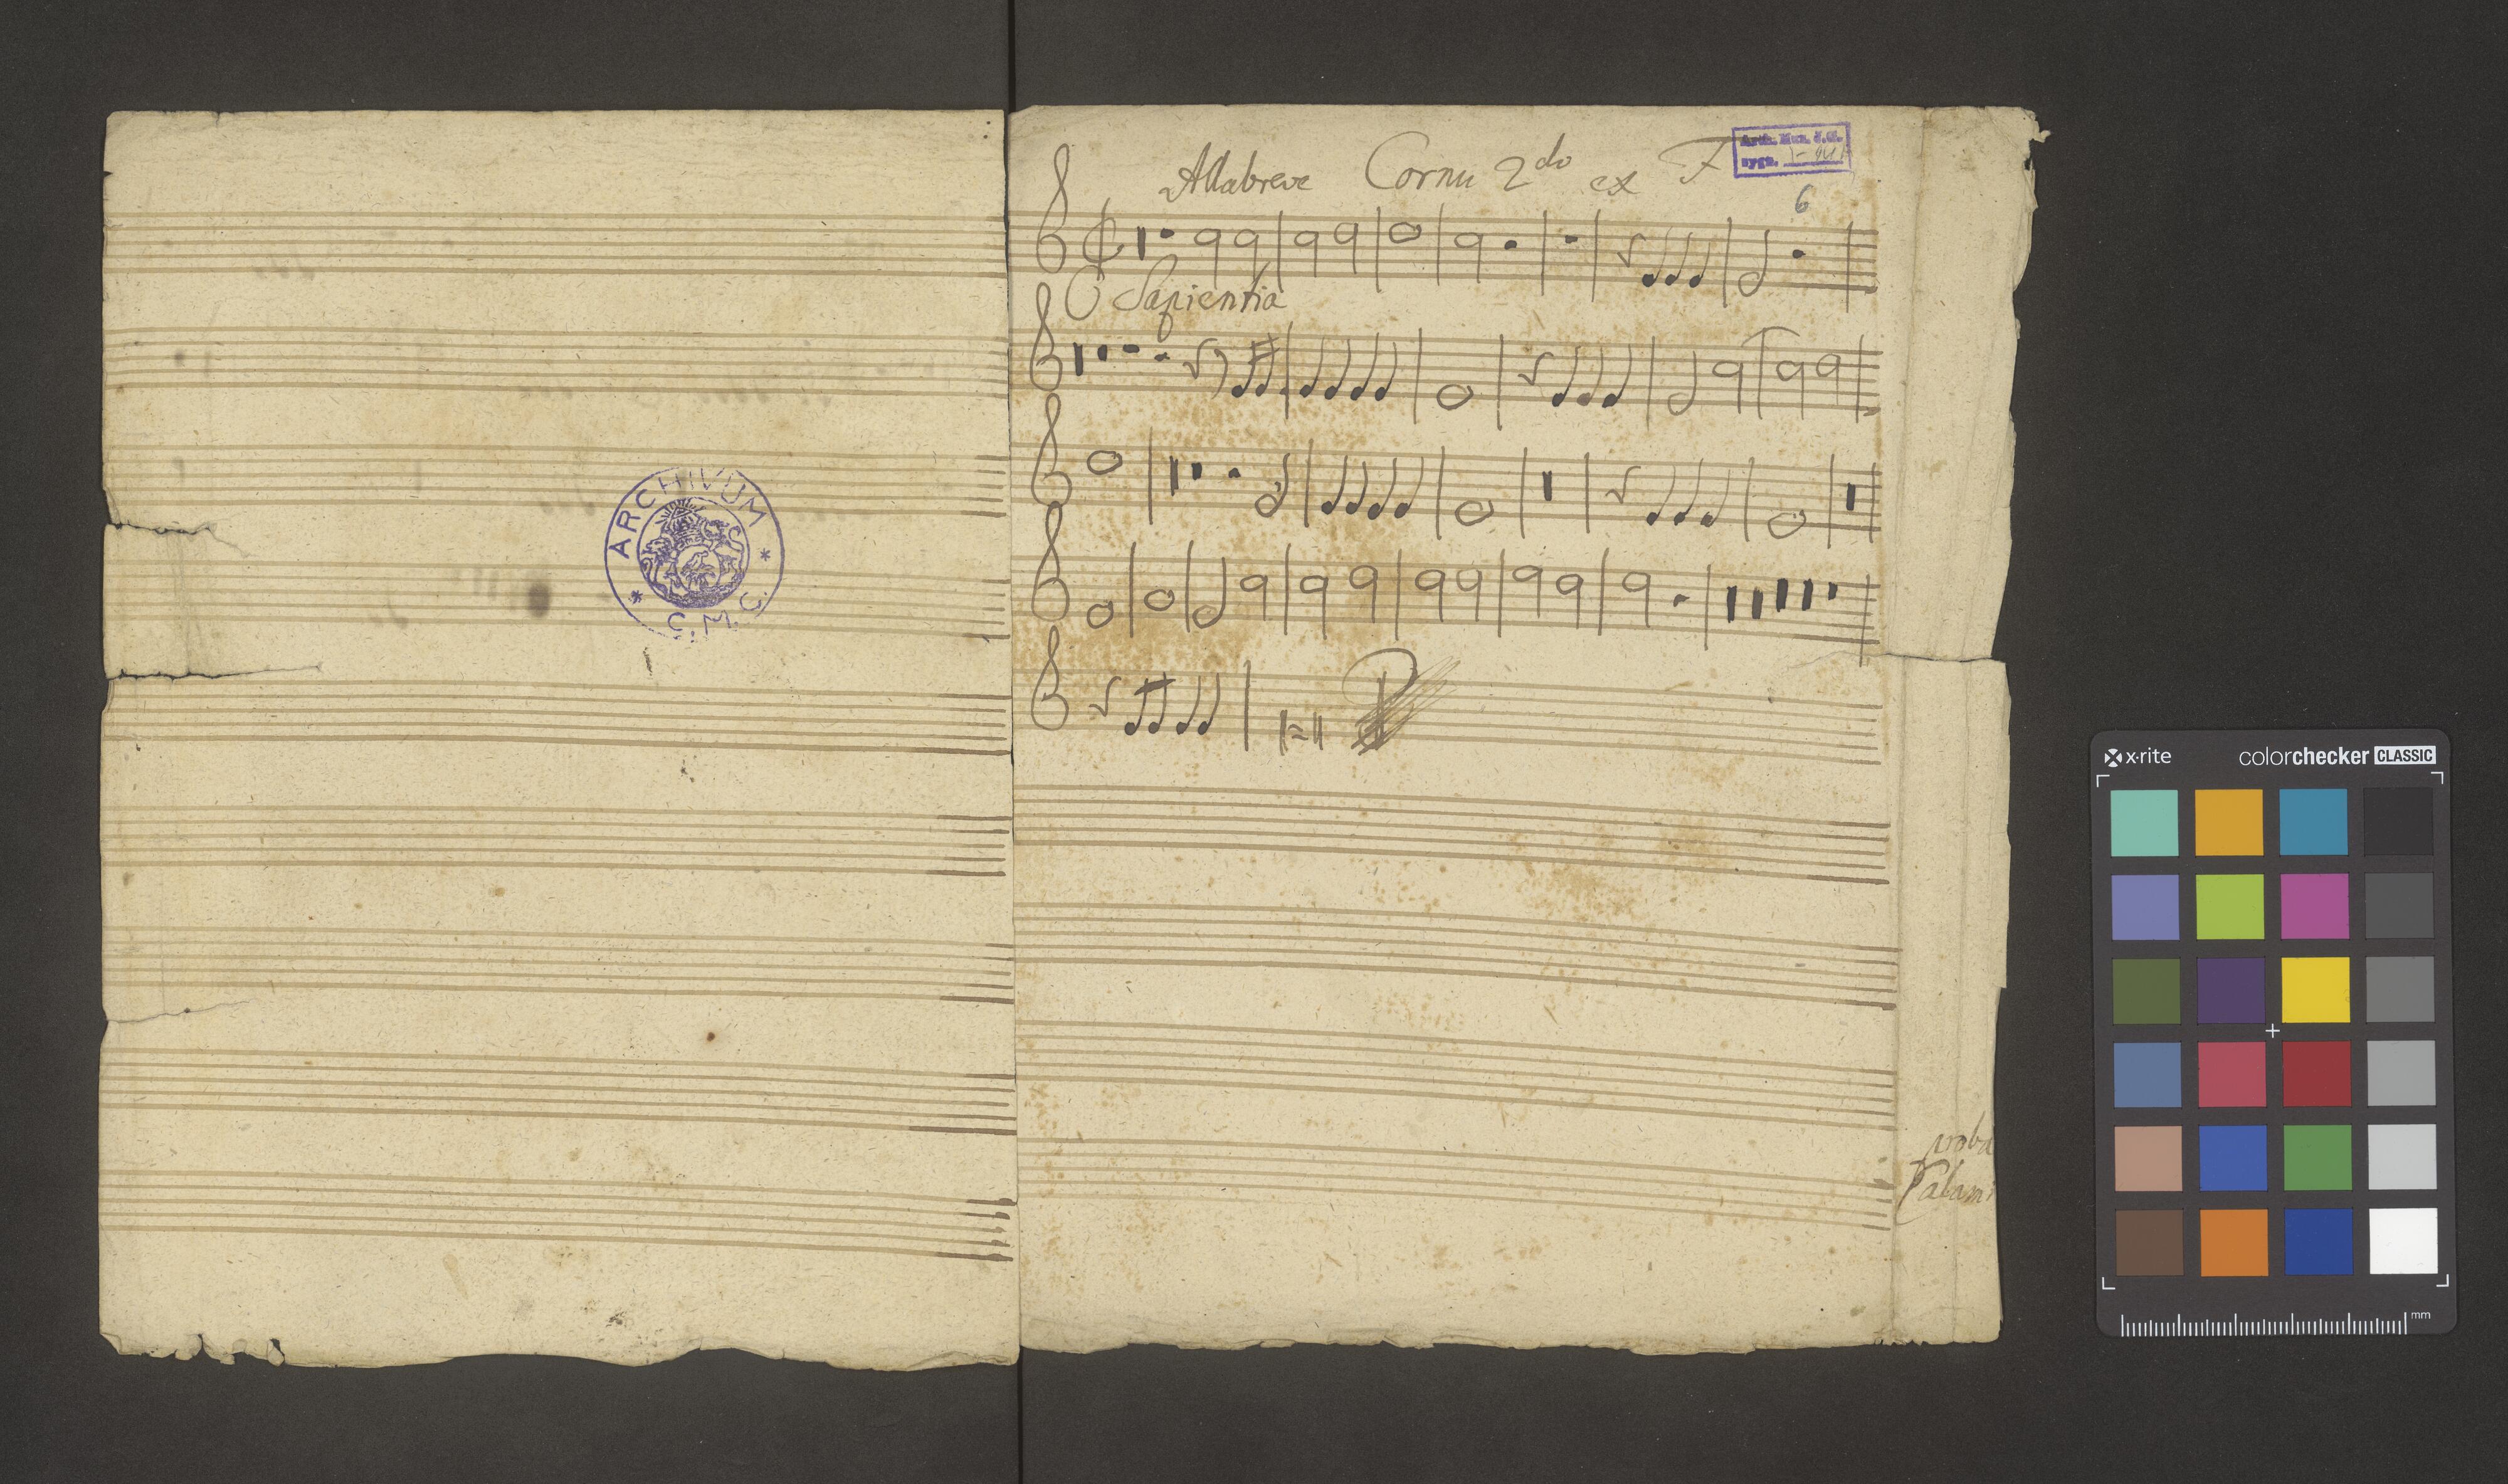 Allabreve Cornu 2do ex F
Arch. Mus. J.G.
sygn.
6
O Sapientia
ARCHIVUM
C.M.C.
x-rite
colorchecker CLASSIC
mm